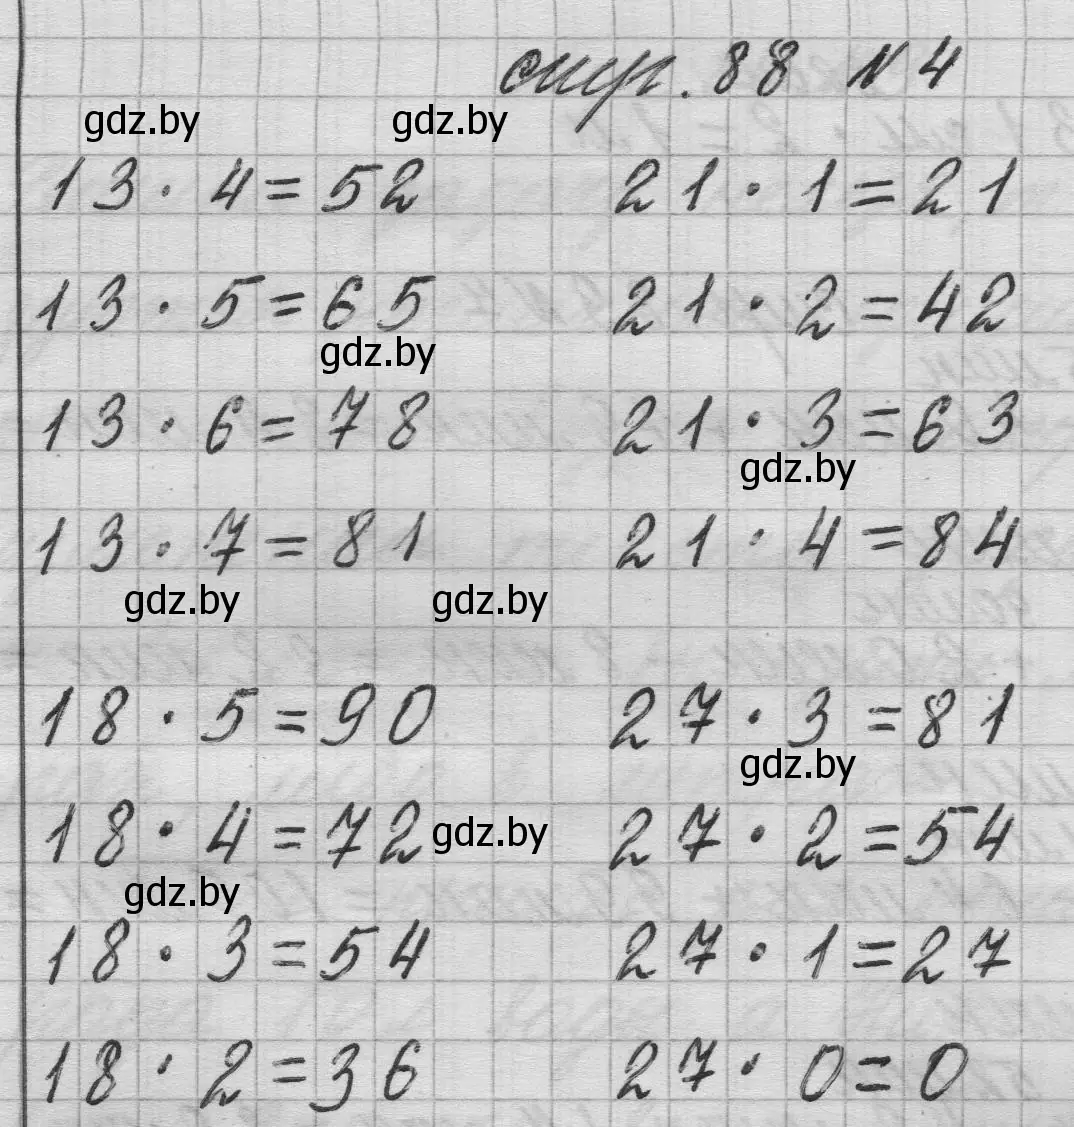 стр. 88 № 4
gdz.by gdz.by
13 · 4 = 52 21 · 1 = 21
13 · 5 = 65 21 · 2 = 42
gdz.by
13 · 6 = 78 21 · 3 = 63
gdz.by
13 · 7 = 81 21 · 4 = 84
gdz.by gdz.by
18 · 5 = 90 27 · 3 = 81
gdz.by
18 · 4 = 72 gdz.by 27 · 2 = 54
gdz.by
18 · 3 = 54 27 · 1 = 27
18 · 2 = 36 27 · 0 = 0